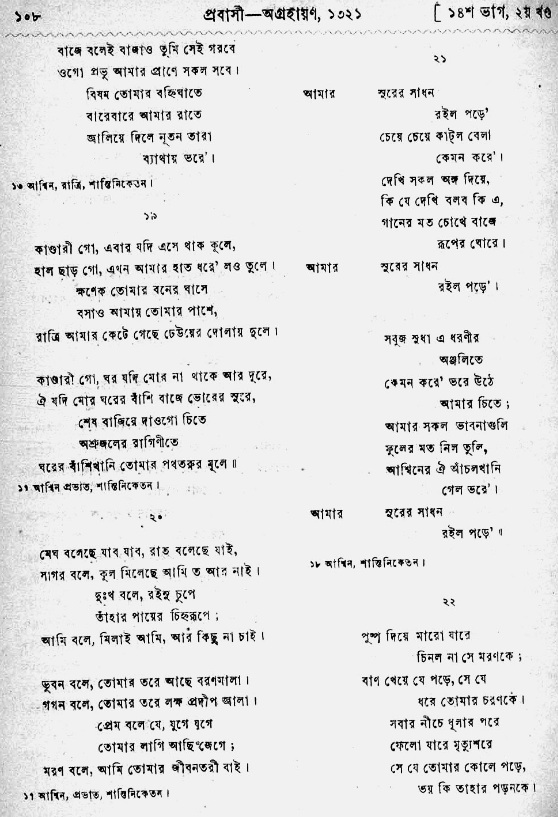 ১০৮
প্রবাসী—অগ্রহায়ণ, ১৩২১
[ ১৪শ ভাগ, ২য় খণ্ড
বাজে বলেই বাজাও তুমি সেই গরবে
ওগো প্রভু আমার প্রাণে সকল সবে।
বিষম তোমার বহ্নিঘাতে
বারেবারে আমার রাতে
জ্বালিয়ে দিলে নূতন তারা
ব্যাথায় ভরে'।
১৬ আশ্বিন, রাত্রি, শান্তিনিকেতন।
১৯
কাণ্ডারী গো, এবার যদি এসে থাক কূলে,
হাল ছাড় গো, এখন আমার হাত ধরে' লও তুলে।
ক্ষণেক তোমার বনের ঘাসে
বসাও আমায় তোমার পাশে,
রাত্রি আমার কেটে গেছে ঢেউয়ের দোলায় দুলে।
কাণ্ডারী গো, ঘর যদি মোর না থাকে আর দূরে,
ঐ যদি মোর ঘরের বাঁশি বাজে ভোরের সুরে,
শেষ বাজিয়ে দাওগো চিতে
অশ্রুজলের রাগিণীতে
ঘরের বাঁশিখানি তোমার পথতরুর মূলে॥
১৭ আশ্বিন প্রভাত, শান্তিনিকেতন।
২০
মেঘ বলেছে যাব যাব, রাত বলেছে যাই,
সাগর বলে, কূল মিলেছে আমি ত আর নাই।
দুঃখ বলে, রইনু চুপে
তাঁহার পায়ের চিহ্নরূপে;
আমি বলে, মিলাই আমি, আর কিছু না চাই।
ভুবন বলে, তোমার তরে আছে বরণমালা।
গগন বলে, তোমার তরে লক্ষ প্রদীপ জ্বালা।
প্রেম বলে যে, যুগে যুগে
তোমার লাগি আছি জেগে;
মরণ বলে, আমি তোমার জীবনতরী বাই।
১৭ আশ্বিন, প্রভাত, শান্তিনিকেতন।
২১
আমার সুরের সাধন
রইল পড়ে'
চেয়ে চেয়ে কাট্‌ল বেলা
কেমন করে'।
দেখি সকল অঙ্গ দিয়ে,
কি যে দেখি বলব কি এ,
গানের মত চোখে বাজে
রূপের ঘোরে।
আমার সুরের সাধন
রইল পড়ে'।
সবুজ সুধা এ ধরণীর
অঞ্জলিতে
কেমন করে' ভরে উঠে
আমার চিতে;
আমার সকল ভাবনাগুলি
ফুলের মত নিল তুলি,
আশ্বিনের ঐ আঁচলখানি
গেল ভরে'।
আমার সুরের সাধন
রইল পড়ে'॥
১৮ আশ্বিন, শান্তিনিকেতন।
২২
পুষ্প দিয়ে মারো যারে
চিনল না সে মরণকে;
বাণ খেয়ে যে পড়ে, সে যে
ধরে তোমার চরণকে।
সবার নীচে ধূলার পরে
ফেলো যারে মৃত্যুশরে
সে যে তোমার কোলে পড়ে,
ভয় কি তাহার পড়নকে।